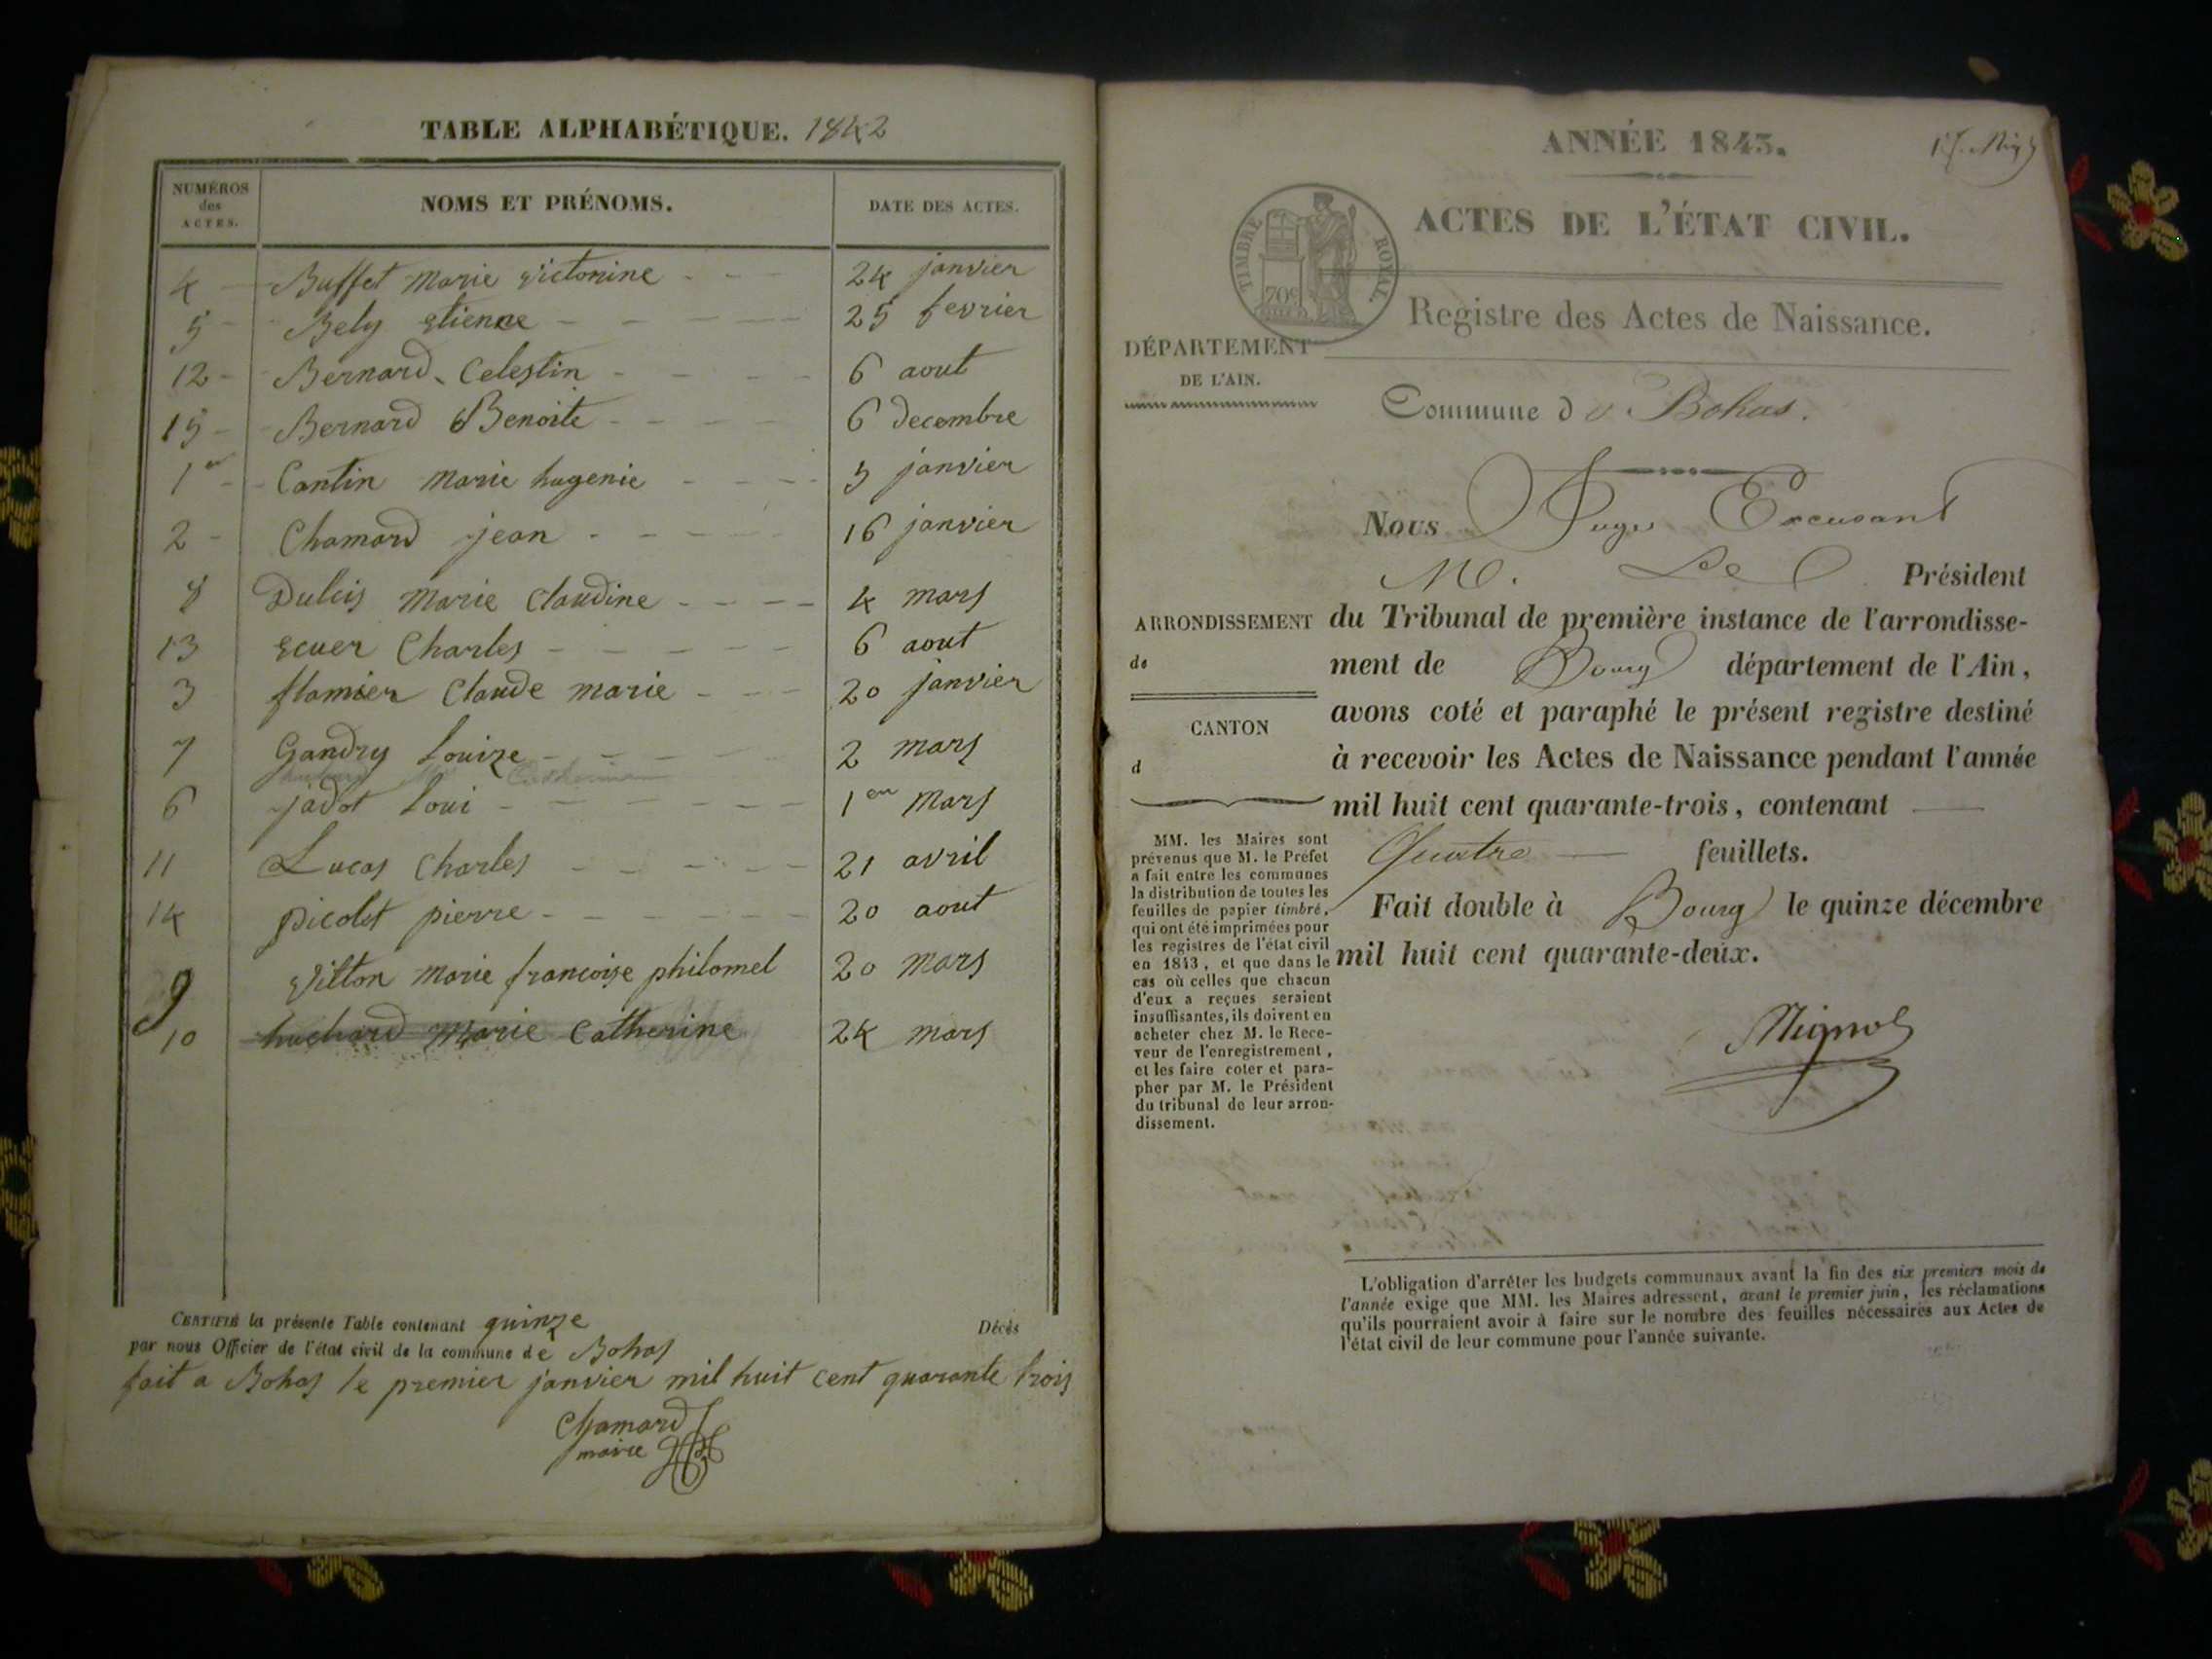 TABLE ALPHABÉTIQUE. 1842
NUMÉROS des ACTES. NOMS ET PRÉNOMS. DATE DES ACTES.
4 Buffet Marie victorine 24 janvier
5 Bely etienne 25 fevrier
12 Bernard Celestin 6 aout
15 Bernard Benoite 6 decembre
1er Cantin Marie hugenie 5 janvier
2 Chamard jean 16 janvier
8 Dulcis Marie Claudine 4 mars
13 ecuer Charles 6 aout
3 flamier Claude marie 20 janvier
7 Gandry Louize 2 mars
6 jadot Loui 1er Mars
11 Lucas Charles 21 avril
14 picolet pierre 20 aout
9 vitton Marie francoise philomel 20 Mars
10 huchard Marie Catherine 24 mars
CERTIFIÉ la présente Table contenant quinze Décès
par nous Officier de l'état civil de la commune de Bohas
fait a Bohas le premier janvier mil huit cent quarante trois
Chamard
maire
ANNÉE 1843.
ACTES DE L'ÉTAT CIVIL.
TIMBRE ROYAL.
70c
Registre des Actes de Naissance.
DÉPARTEMENT
DE L'AIN.
Commune de Bohas.
Nous Juge Excusant
M. Le Président
ARRONDISSEMENT
de
CANTON
d
du Tribunal de première instance de l'arrondisse-
ment de Bourg département de l'Ain,
avons coté et paraphé le présent registre destiné
à recevoir les Actes de Naissance pendant l'année
mil huit cent quarante-trois, contenant
Quatre feuillets.
Fait double à Bourg le quinze décembre
mil huit cent quarante-deux.
Mignot
MM. les Maires sont
prévenus que M. le Préfet
a fait entre les communes
la distribution de toutes les
feuilles de papier timbré,
qui ont été imprimées pour
les registres de l'état civil
en 1843, et que dans le
cas où celles que chacun
d'eux a reçues seraient
insuffisantes, ils doivent en
acheter chez M. le Rece-
veur de l'enregistrement,
et les faire coter et para-
pher par M. le Président
du tribunal de leur arron-
dissement.
L'obligation d'arrêter les budgets communaux avant la fin des six premiers mois de
l'année exige que MM. les Maires adressent, avant le premier juin, les réclamations
qu'ils pourraient avoir à faire sur le nombre des feuilles nécessaires aux Actes de
l'état civil de leur commune pour l'année suivante.